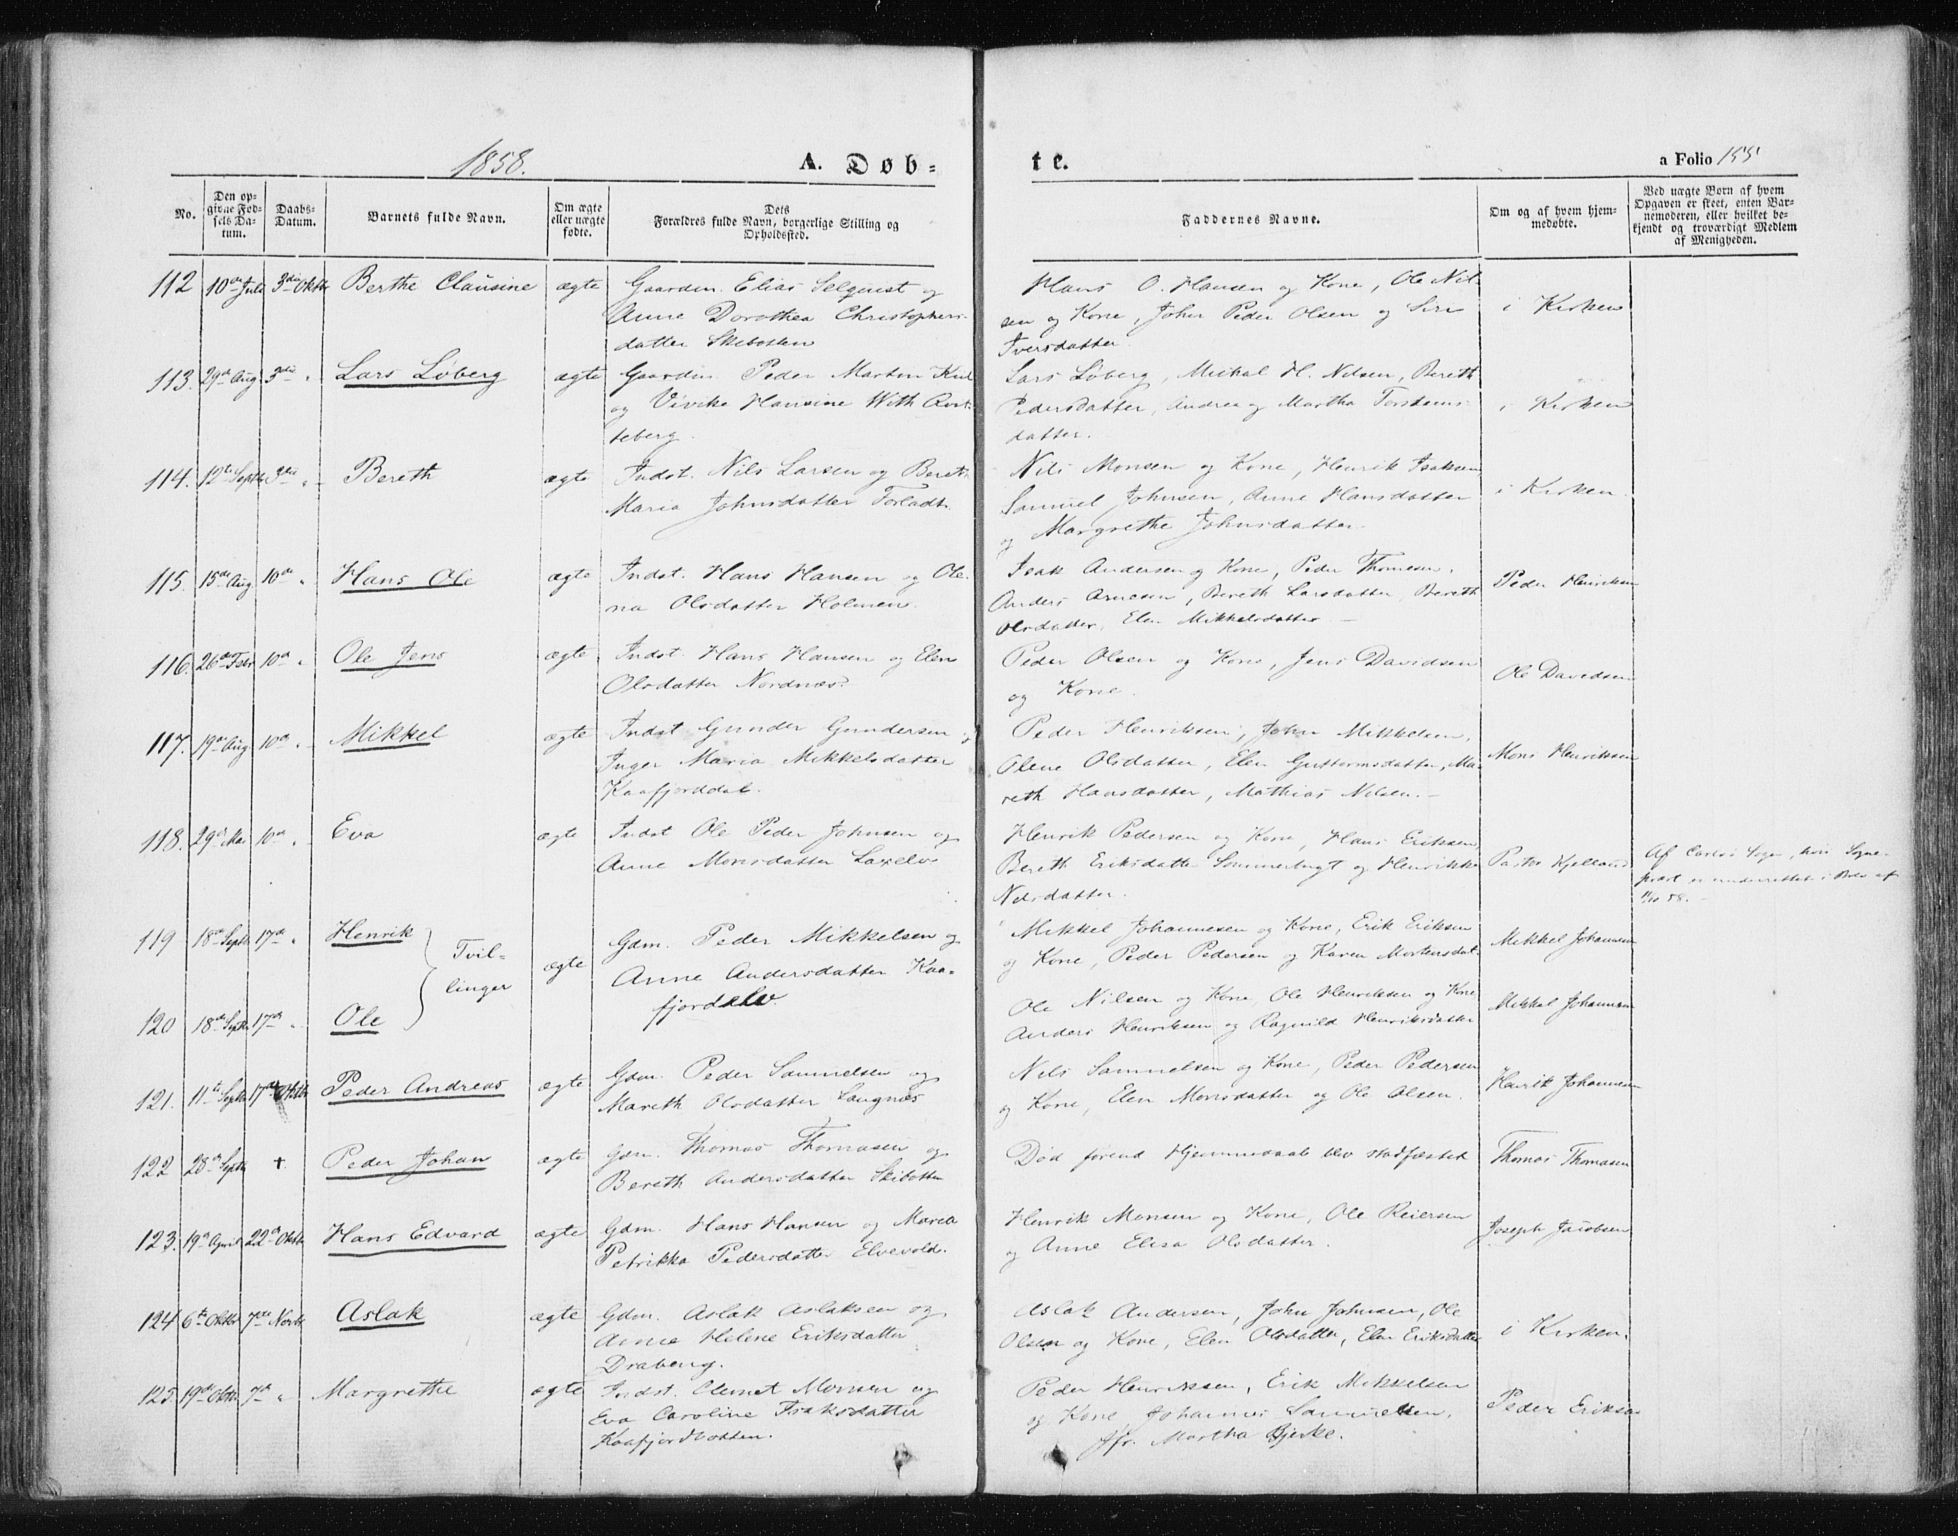 1858. A. Døb-
te. a Folio 155
No.
Den op-
givne Fød-
sels Da-
tum.
Daabs-
Datum.
Barnets fulde Navn.
Om ægte
eller uægte
fødte.
Dets
Forældres fulde Navn, borgerlige Stilling og
Opholdssted.
Faddernes Navne.
Om og af hvem hjem-
medøbte.
Ved uægte Børn af hvem
Opgaven er skeet, enten Bar-
nemoderen, eller hvilket be-
kjendt og troværdigt Medlem
af Menigheden.
112 10de Juli 3die Oktbr Berthe Clausine ægte Gaardm. Elias Selqvist og
Anne Dorothea Christophers-
datter Skibotten
Hans O. Hansen og Kone, Ole Nil-
sen og Kone, John Peder Olsen og Siri
Iversdatter.
i Kirken
113. 29de Aug. 3die " Lars Løberg ægte Gaardm. Peder Martin Kiil
og Vivike Hansine With Qvit-
teberg.
Lars Løberg, Mickal H. Nilsen, Bereth
Pedersdatter, Andrea og Martha Torstens-
datter.
i Kirken
114. 12te Septbr 3die " Bereth ægte Indst. Nils Larsen og Bereth
Maria Johnsdatter Forladt.
Nils Monsen og Kone, Henrik Isaksen
Samuel Johnsen, Anne Hansdatter
og Margrethe Johnsdatter.
i Kirken.
115. 15de Aug 10de " Hans Ole ægte Indst. Hans Hansen og Ole-
na Olsdatter Holmen.
Isak Andersen og Kone, Peder Thomesen,
Anders Arnesen, Bereth Larsdatter, Bereth
Olsdatter, Elen Mikkelsdatter. —
Peder Henriksen
116. 26de Febr 10de " Ole Jens ægte Indst. Hans Hansen og Elen
Olsdatter Nordnæs.
Peder Olsen og Kone, Jens Davidsen
og Kone.
Ole Davidsen
117. 19de Aug 10de " Mikkel ægte Indst Gunder Gundersen og
Inger Maria Mikkelsdatter
Kaafjorddal.
Peder Henriksen, John Mikkelsen,
Olene Olsdatter, Elen Guttormsdatter, Ma-
reth Hansdatter, Mathias Nilsen. —
Mons Henriksen
118. 29de Mai 10de " Eva ægte Indst Ole Peder Johnsen og
Anne Monsdatter Laxelv
Henrik Pedersen og Kone, Hans Eriksen,
Bereth Eriksdatter Sommerbugt og Henrikke
Nilsdatter.
Pastor Kjelland
Af Carlsø Sogn, hvis Sogne-
præst er underrettet i Brev af
58. —
119 18de Septbr 17de " Henrik
Tvil-
linger
ægte
Gdm. Peder Mikkelsen og
Anne Andersdatter Kaa-
fjordelv
Mikkel Johannesen og Kone, Erik Eriksen
og Kone, Peder Pedersen og Karen Mortensdat.
Mikkel Johannesen
120 18de Septbr 17de " Ole
Ole Nilsen og Kone, Ole Henriksen og Kone
Anders Henriksen og Ragnild Henriksdatter
Mikkel Johannesen
121. 11te Septbr 17de Oktbr Peder Andreas ægte Gdm. Peder Samuelsen og
Mareth Olsdatter Langnæs
Nils Samuelsen og Kone, Peder Pedersen
og Kone, Elen Monsdatter og Ole Olsen.
Henrik Johannesen
122 28de Septbr + Peder Johan ægte Gdm. Thomas Thomasen og
Bereth Andersdatter Skibotten
Død førend Hjemmedaab blev stadfæstet
Thomas Thomasen
123. 19de April 22de Oktbr Hans Edvard ægte Gdm. Hans Hansen og Maria
Petrikka Pedersdatter Elvevold.
Henrik Monsen og Kone, Ole Reiersen
og Anne Elisa Olsdatter.
Joseph Jacobsen
124 6te Oktbr 7de Novbr Aslak ægte Gdm. Aslak Aslaksen og
Anne Helene Eriksdatter
Drabeng.
Aslak Andersen, John Johnsen, Ole
Olsen og Kone, Elen Olsdatter, Elen Eriksdatter
i Kirken.
125. 19de Oktbr 7de " Margrethe ægte Indst. Clemet Monsen og
Eva Caroline Isaksdatter
Kaafjordbotten.
Peder Henriksen, Erik Mikkelsen
og Kone, Johannes Samuelsen,
Jfr. Martha Bjerke.
Peder Eriksen